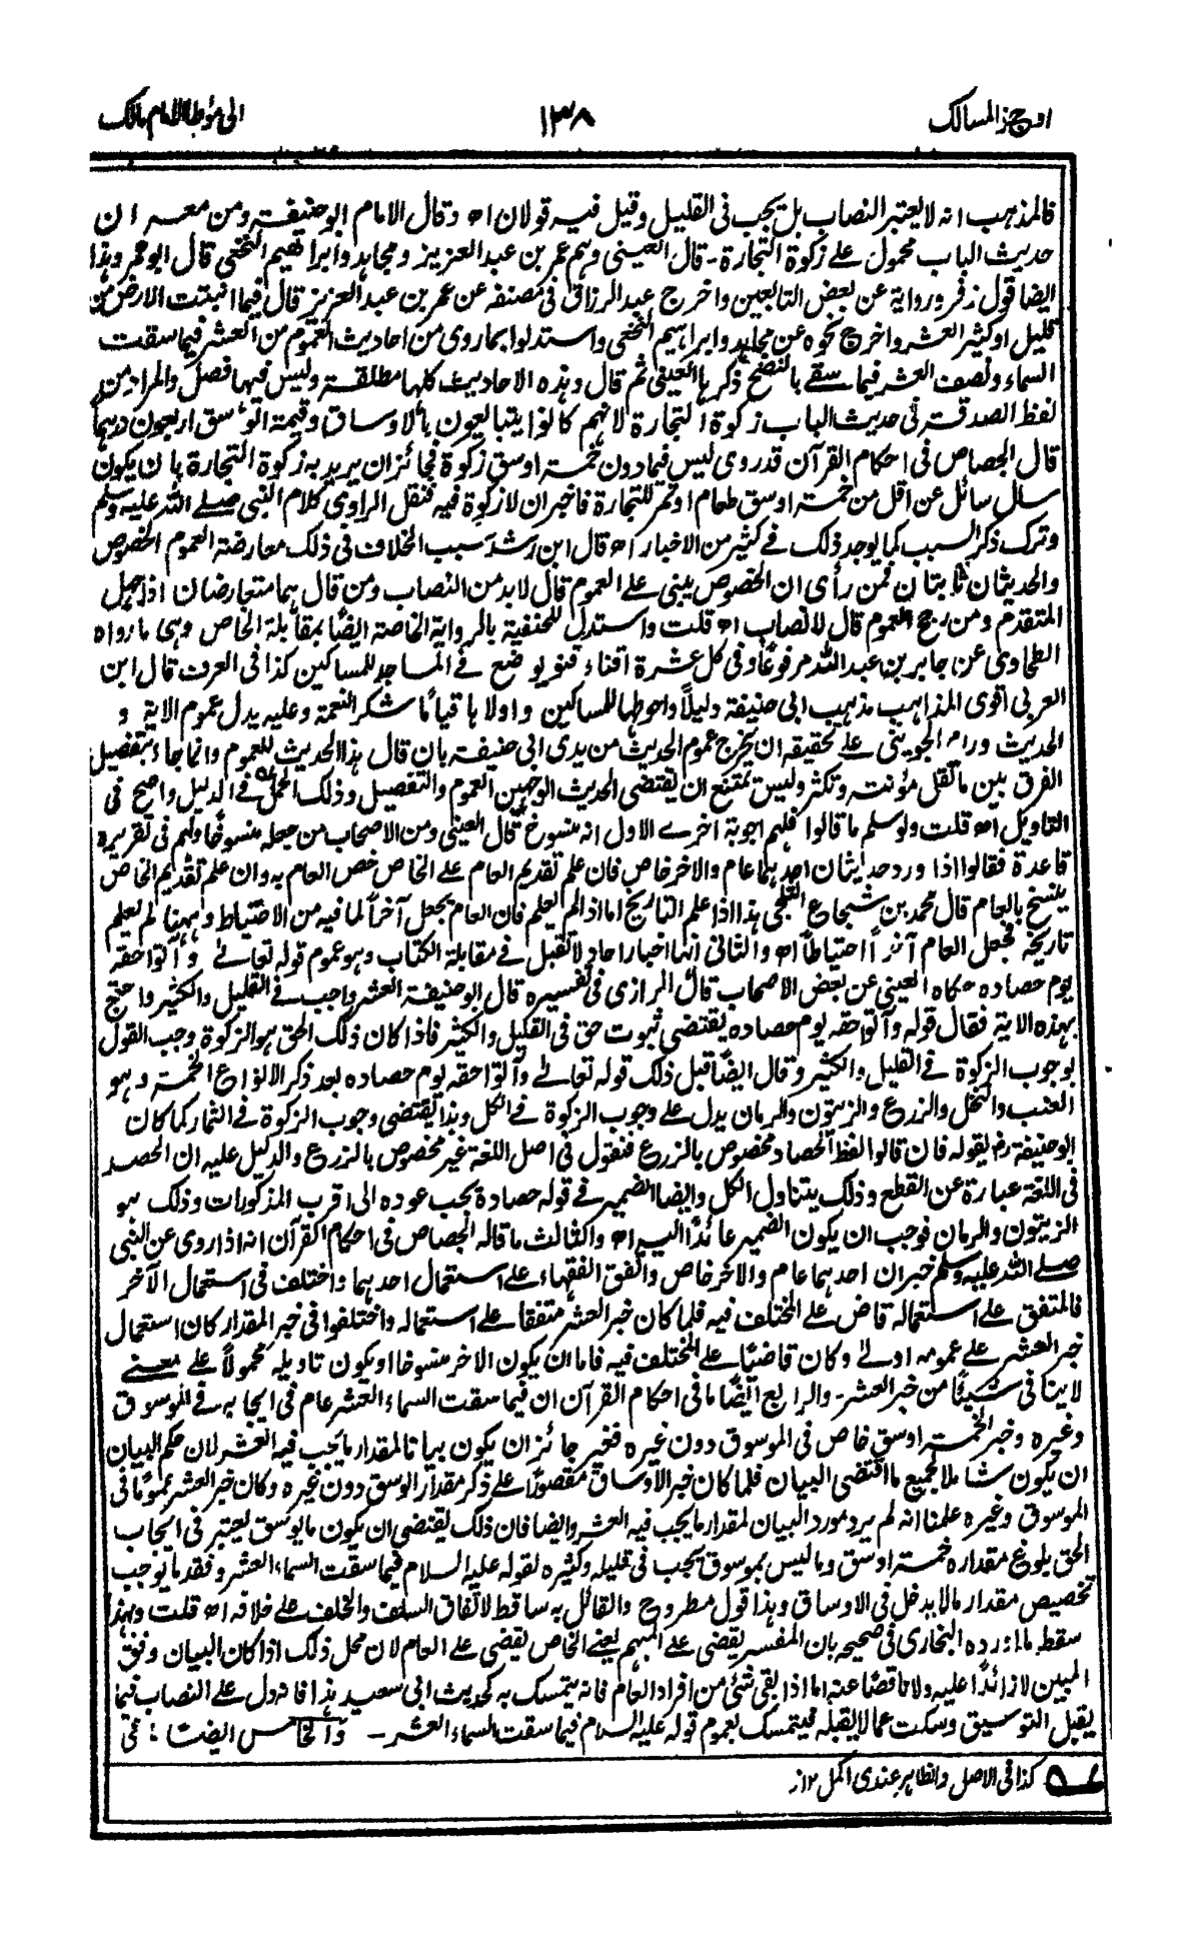 اوجز المسالك
١٣٨
الى مؤطا الامام مالك
فالمذهب انه لا يعتبر النصاب بل يجب فى القليل وقيل فيه قولان اه وقال الامام ابو حنيفة ومن معه ان
حديث الباب محمول على زكوة التجارة۔ قال العينى وهم عمر بن عبد العزيز ومجاهد وابراهيم النخعى قال ابو عمر وهذا
ايضا قول زفر ورواية عن بعض التابعين واخرج عبد الرزاق فى مصنفه عن عمر بن عبد العزيز قال فيما انبتت الارض من
قليل او كثير العشر واخرج نحوه عن مجاهد وابراهيم النخعى واستدلوا بما روى من احاديث العموم من العشر فيما سقت
السماء ونصف العشر فيما سقى بالنضح ذكرها العينى ثم قال وهذه الاحاديث كلها مطلقة وليس فيها فصل والمراد من
لفظ الصدقة فى حديث الباب زكوة التجارة لانهم كانوا يتبايعون بالاوساق وقيمة الوسق اربعون درهما
قال الجصاص فى احكام القرآن قد روى ليس فيما دون خمسة اوسق زكوة فجائز ان يريد به زكوة التجارة بان يكون
سال سائل عن اقل من خمسة اوسق طعام او تمر للتجارة فاخبر ان لا زكوة فيه فنقل الراوى كلام النبى صلے الله عليه وسلم
وترك ذكر السبب كما يوجد ذلك فى كثير من الاخبار اه قال ابن رشد سبب الخلاف فى ذلك معارضة العموم الخصوص
والحديثان ثابتان فمن رأى ان الخصوص يبنى على العموم قال لا بد من النصاب ومن قال هما متعارضان اذ جهل
المتقدم ومن رجح العموم قال لا نصاب اه قلت واستدل للحنفية بالرواية الخاصة ايضًا بمقابلة الخاص وهى ما رواه
الطحاوى عن جابر بن عبد الله مرفوعًا وفى كل عشرة اقناء قنو يوضع فى المساجد للمساكين كذا فى العرف قال ابن
العربى اقوى المذاهب مذهب ابى حنيفة دليلًا واحوطها للمساكين واولاها قيامًا شكر النعمة وعليه يدل عموم الاية و
الحديث ورام الجوينى على تحقيقه ان يخرج عموم الحديث من يدى ابى حنيفة بان قال هذا الحديث للعموم وانما جاء بتفصيل
الفرق بين ما تقل مؤنته وتكثر وليس بممتنع ان يقتضى الحديث الوجهين العموم والتفصيل وذلك اكمل فى الدليل واصح فى
التاويل اه قلت ولو سلم ما قالوا فلهم اجوبة اخرے الاول انه منسوخ قال العينى ومن الاصحاب من جعله منسوخًا ولهم فى تقريره
قاعدة فقالوا اذا ورد حديثان احدهما عام والاخر خاص فان علم تقديم العام على الخاص خص العام به وان علم تقديم الخاص
ينسخ بالعام قال محمد بن شجاع الثلجى هذا اذا علم التاريخ اما اذا لم يعلم فان العام يجعل آخراً لما فيه من الاحتياط وههنا لم يعلم
تاريخه فجعل العام آخراً احتياطًا اه والثانى انها اخبار احاد لا تقبل فى مقابلة الكتاب وهو عموم قوله تعالے وآتوا حقه
يوم حصاده حكاه العينى عن بعض الاصحاب قال الرازى فى تفسيره قال ابو حنيفة العشر واجب فى القليل والكثير واحتج
بهذه الاية فقال قوله وآتوا حقه يوم حصاده يقتضى ثبوت حق فى القليل والكثير فاذا كان ذلك الحق هو الزكوة وجب القول
بوجوب الزكوة فى القليل والكثير وقال ايضًا قبل ذلك قوله تعالے وآتوا حقه يوم حصاده بعد ذكر الانواع الخمسة وهو
العنب والنخل والزرع والزيتون والرمان يدل على وجوب الزكوة فى الكل وهذا يقتضى وجوب الزكوة فى الثمار كما كان
ابو حنيفة رم يقوله فان قالوا لفظ الحصاد مخصوص بالزرع فنقول فى اصل اللغة غير مخصوص بالزرع والدليل عليه ان الحصد
فى اللغة عبارة عن القطع وذلك يتناول الكل وايضا الضمير فى قوله حصاده يجب عوده الى اقرب المذكورات وذلك هو
الزيتون والرمان فوجب ان يكون الضمير عائدًا اليه اه والثالث ما قاله الجصاص فى احكام القرآن انه اذا روى عن النبى
صلے الله عليه وسلم خبران احدهما عام والاخر خاص واتفق الفقهاء على استعمال احدهما واختلف فى استعمال الآخر
فالمتفق على استعماله قاض على المختلف فيه فلما كان خبر العشر متفقا على استعماله واختلفوا فى خبر المقدار كان استعمال
خبر العشر على عمومه اولے وكان قاضيًا على المختلف فيه فاما ان يكون الاخر منسوخا او يكون تاويله محمولًا على معنے
لا ينافى شيئًا من خبر العشر۔ والرابع ايضًا ما فى احكام القرآن ان فيما سقت السماء العشر عام فى ايجابه فى الموسوق
وغيره وخبر الخمسة اوسق خاص فى الموسوق دون غيره فغير جائز ان يكون بيانا لمقدار ما يجب فيه العشر لان حكم البيان
ان يكون شاملا لجميع ما اقتضى البيان فلما كان خبر الاوساق مقصورًا على ذكر مقدار الوسق دون غيره وكان خبر العشر عمومًا فى
الموسوق وغيره علمنا انه لم يرد مورد البيان لمقدار ما يجب فيه العشر وايضا فان ذلك يقتضى ان يكون ما يوسق يعتبر فى ايجاب
الحق بلوغ مقداره خمسة اوسق وما ليس بموسوق يجب فى قليله وكثيره لقوله عليه السلام فيما سقت السماء العشر وفقد ما يوجب
تخصيص مقدار ما لا يدخل فى الاوساق وهذا قول مطروح والقائل به ساقط لاتفاق السلف والخلف على خلافه اه قلت وبهذا
سقط ما اورده البخارى فى صحيحه بان المفسر يقضى على المبهم يعنے الخاص يقضى على العام لان محل ذلك اذا كان البيان وفق
المبين لا زائدًا عليه ولا ناقصًا عنه اما اذا بقى شئ من افراد العام فانه يتمسك به كحديث ابى سعيد هذا فانه دل على النصاب فيما
يقبل التوسيق وسكت عما لا يقبله فيتمسك بعموم قوله عليه السلام فيما سقت السماء العشر۔ والخامس ايضًا : فى
كذا فى الاصل والظاهر عندى اكمل ١٢ ز